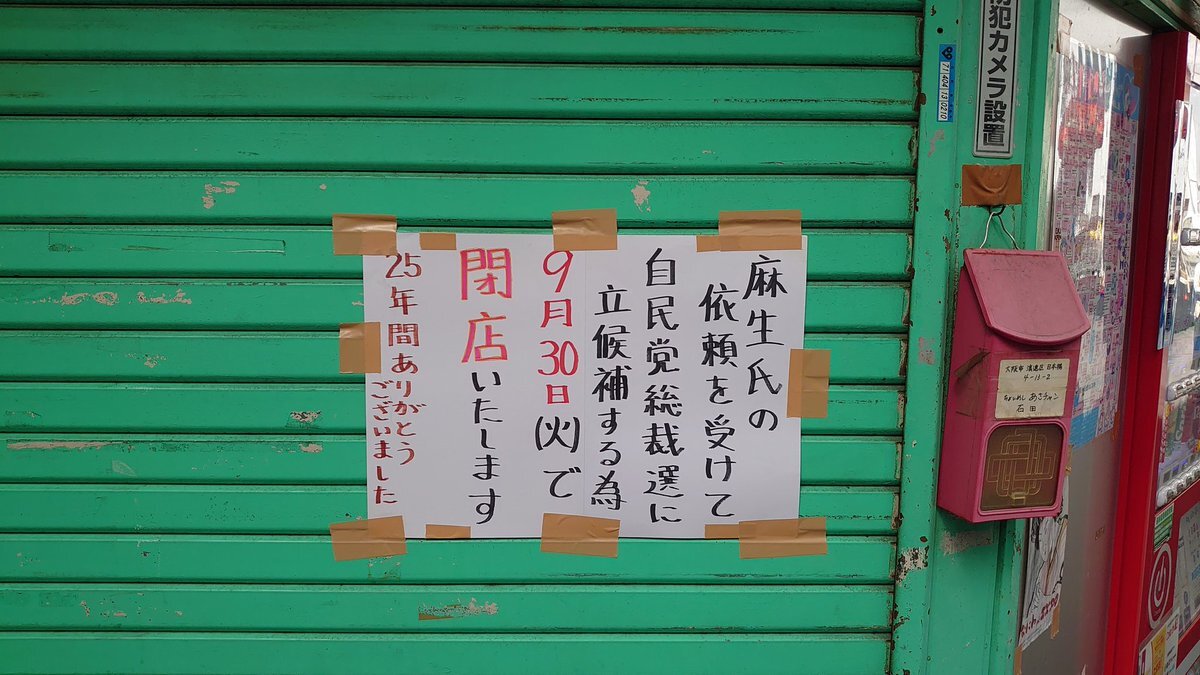 麻生氏の
依頼を受けて
自民党総裁選に
立候補する為
9月30日(火)で
閉店いたします
25年間ありがとう
ございました
防犯カメラ設置
大阪市 浪速区 日本橋
4-15-2
石田